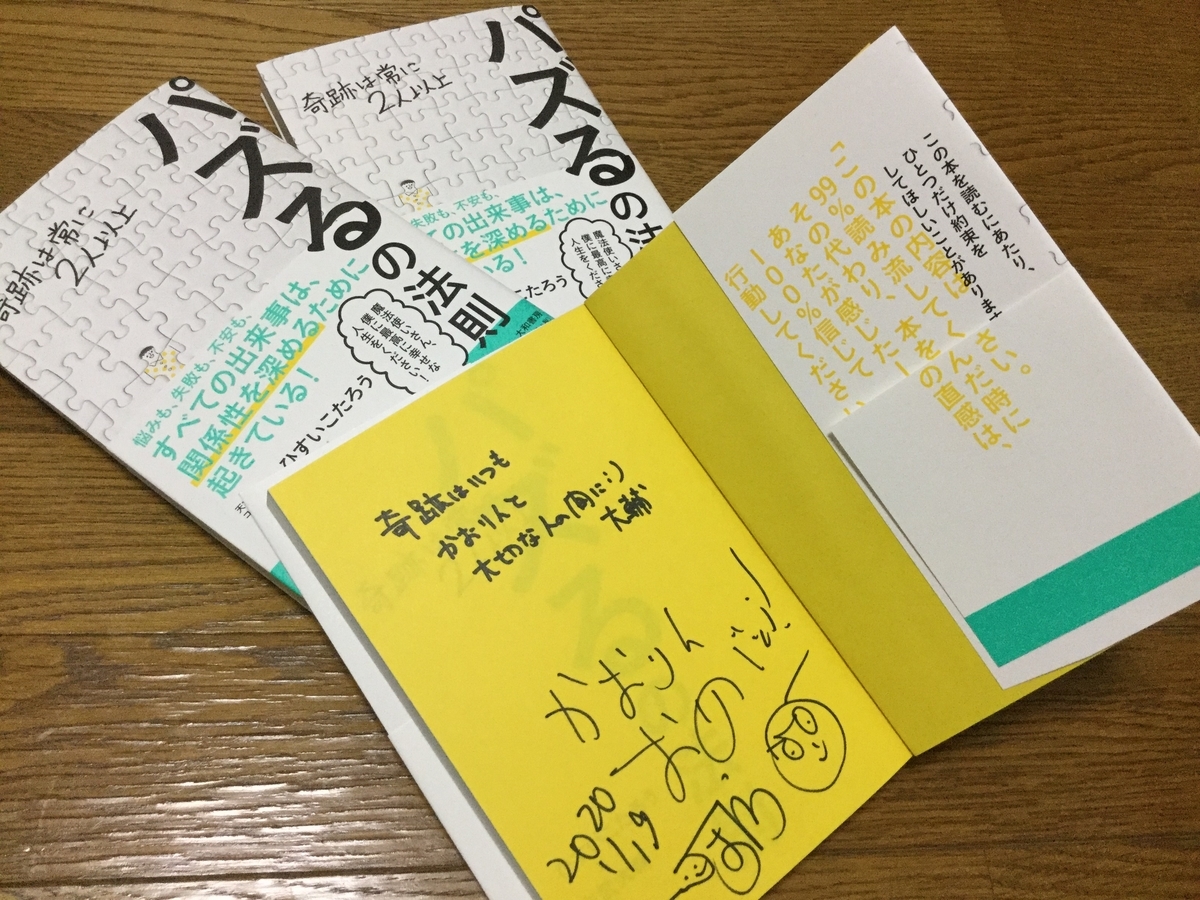 パズるの法則
奇跡は常に
2人以上
悩みも、失敗も、不安も、
すべての出来事は、
関係性を深めるために
起きている!
魔法使いさん、
僕に最高に幸せな
人生をください!
ひすいこたろう
パズるの法
奇跡は常に
2人以上
失敗も、不安も、
の出来事は、
を深めるために
る!
魔法使いさ
僕に最高に
人生をくださ
こたろう
大和書房
この本を読むにあたり、
ひとつだけ約束を
してほしいことがあります
「この本の内容は
99%読み流してく
その代わり、本を
あなたが感じた
100%信じて
行動してください
さい。
んだ時に
の直感は、
奇跡はいつも
かおりんと
大切な人の間に
大輔
かおりん
2020
11.19